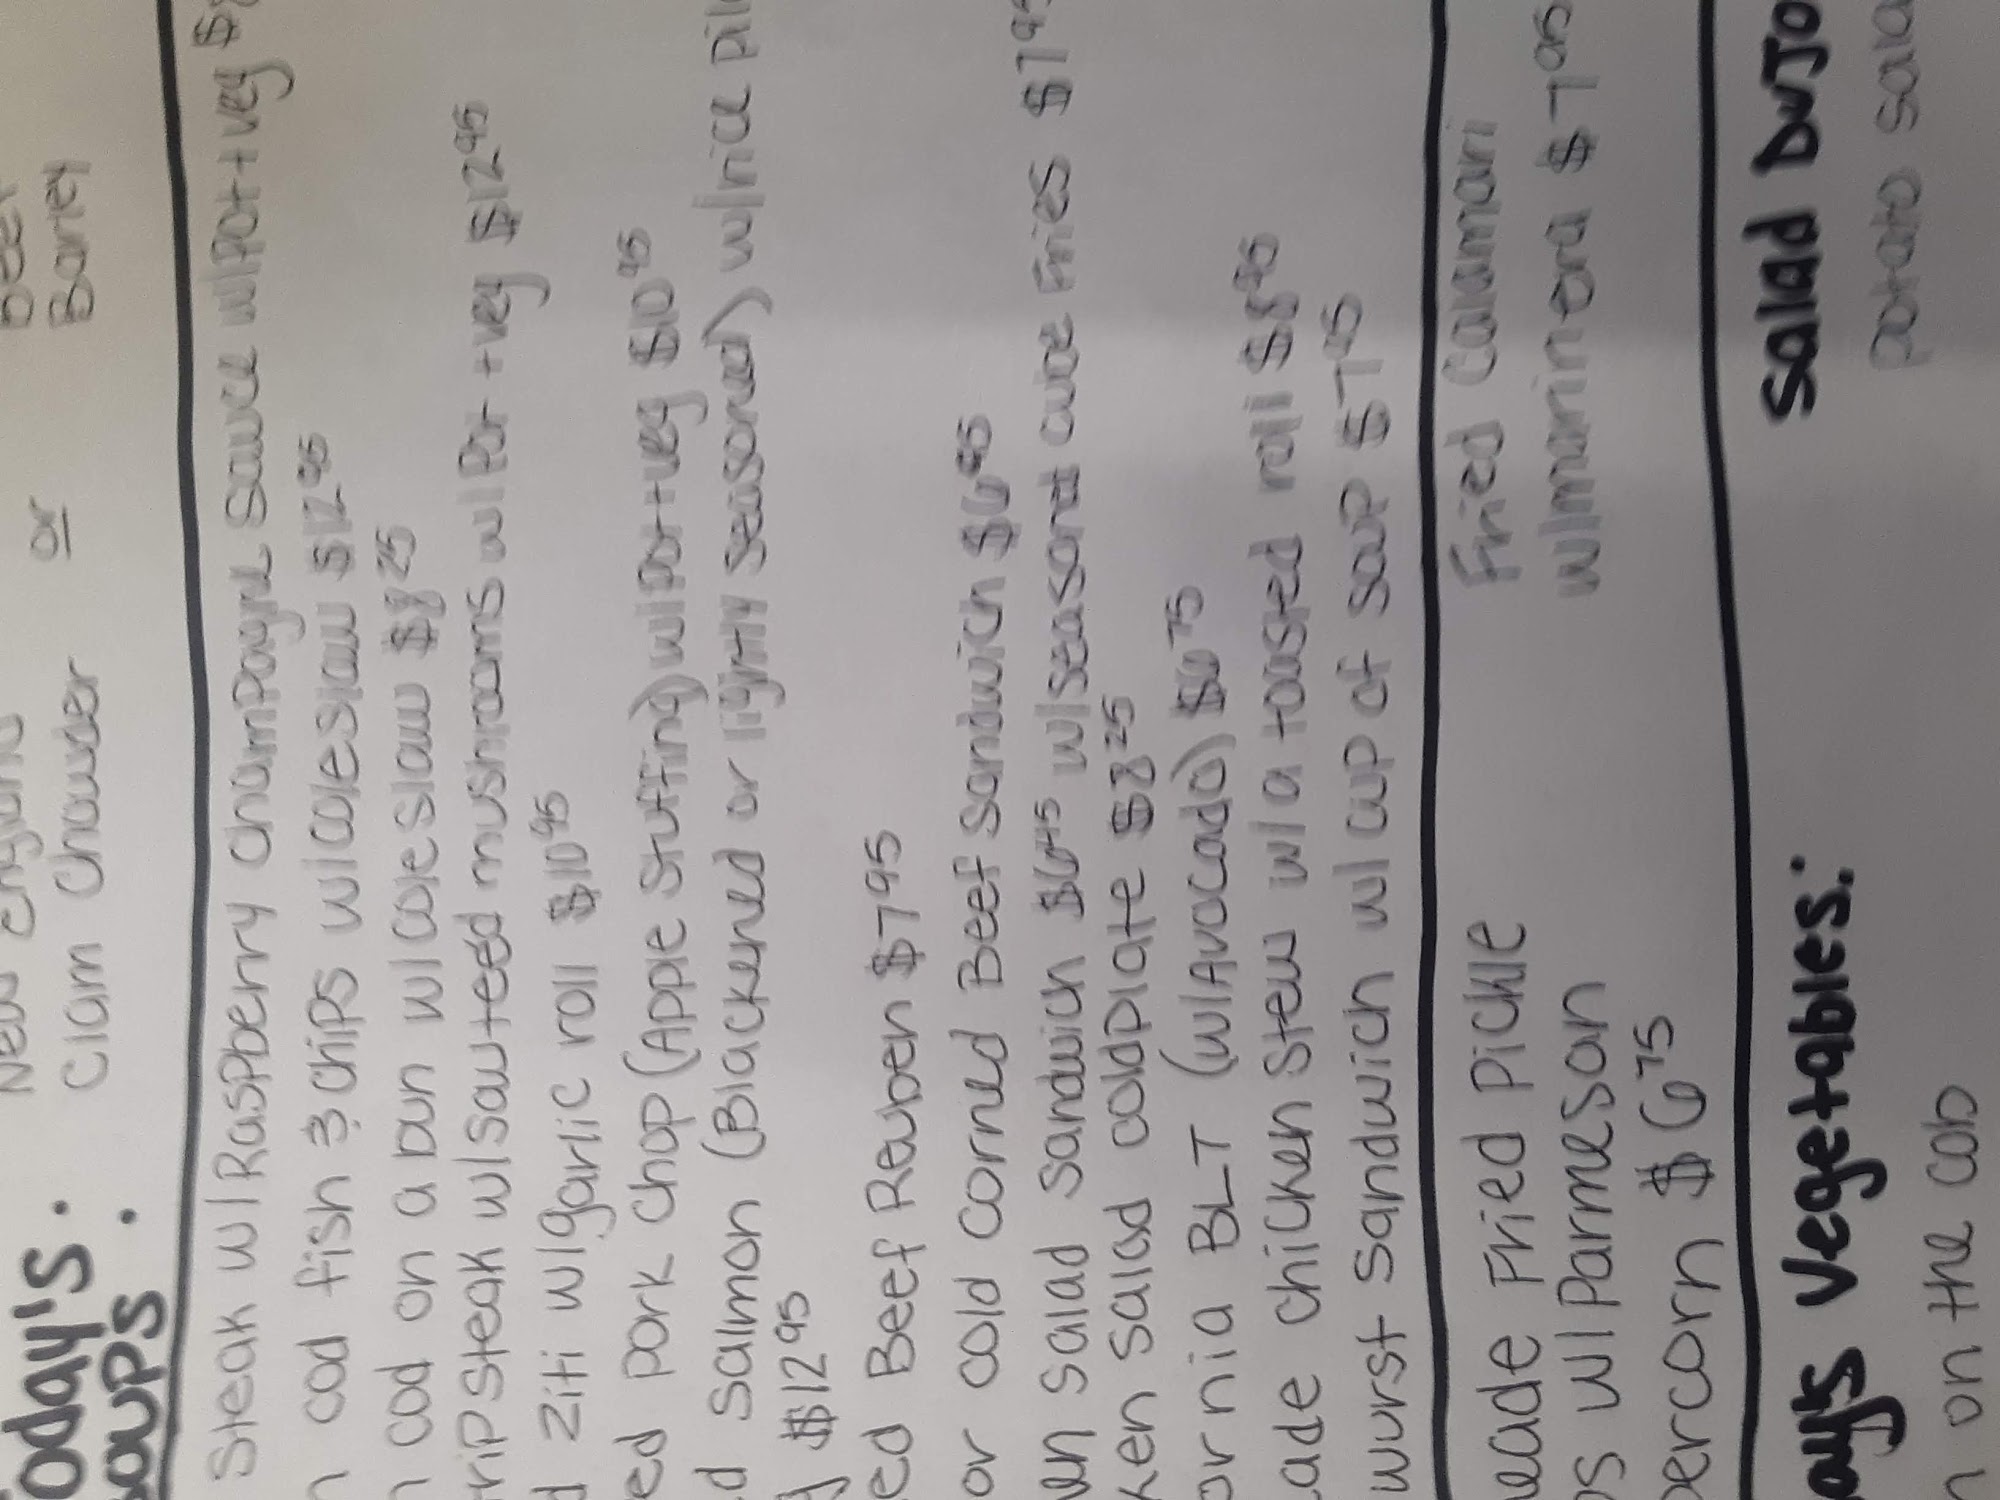 Today's New England Beef
Soups: Clam Chowder or Barley
Steak w/Raspberry champagne sauce w/pot+veg $
cod fish & chips w/coleslaw $12.95
cod on a bun w/coleslaw $8.25
strip steak w/sauteed mushrooms w/pot+veg $12.95
ziti w/garlic roll $10.95
ed pork chop (Apple stuffing) w/pot+veg $10.95
d salmon (Blackened or lightly seasoned) w/rice pil
$12.95
ed Beef Reuben $7.95
or cold corned Beef sandwich $6.95
en salad sandwich $6.45 w/seasoned curve Fries $7.95
ken salad coldplate $8.25
ornia BLT (w/Avacado) $6.75
ade chicken stew w/a toasted roll $8.95
wurst sandwich w/cup of soup $7.95
eade Fried Pickle Fried Calamari
s w/Parmeson w/marinera $7.95
percorn $6.75
ay's Vegetables: Salad DuJo
n on the cob potato sala